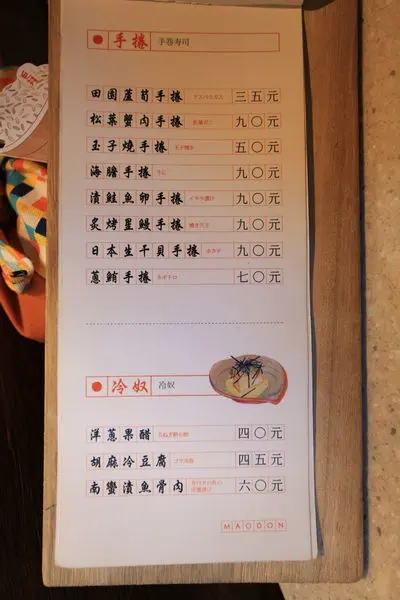 手捲 手卷寿司
田園蘆筍手捲 アスパラガス 三五元
松葉蟹肉手捲 九〇元
玉子燒手捲 玉子焼き 五〇元
海膽手捲 うに 九〇元
漬鮭魚卵手捲 イクラ漬け 九〇元
炙烤星鰻手捲 焼き穴子 九〇元
日本生干貝手捲 ホタテ 九〇元
蔥鮪手捲 ネギトロ 七〇元
冷奴 冷奴
洋蔥果醋 四〇元
胡麻冷豆腐 ゴマ冷奴 四五元
南蠻漬魚骨肉 六〇元
MAODON